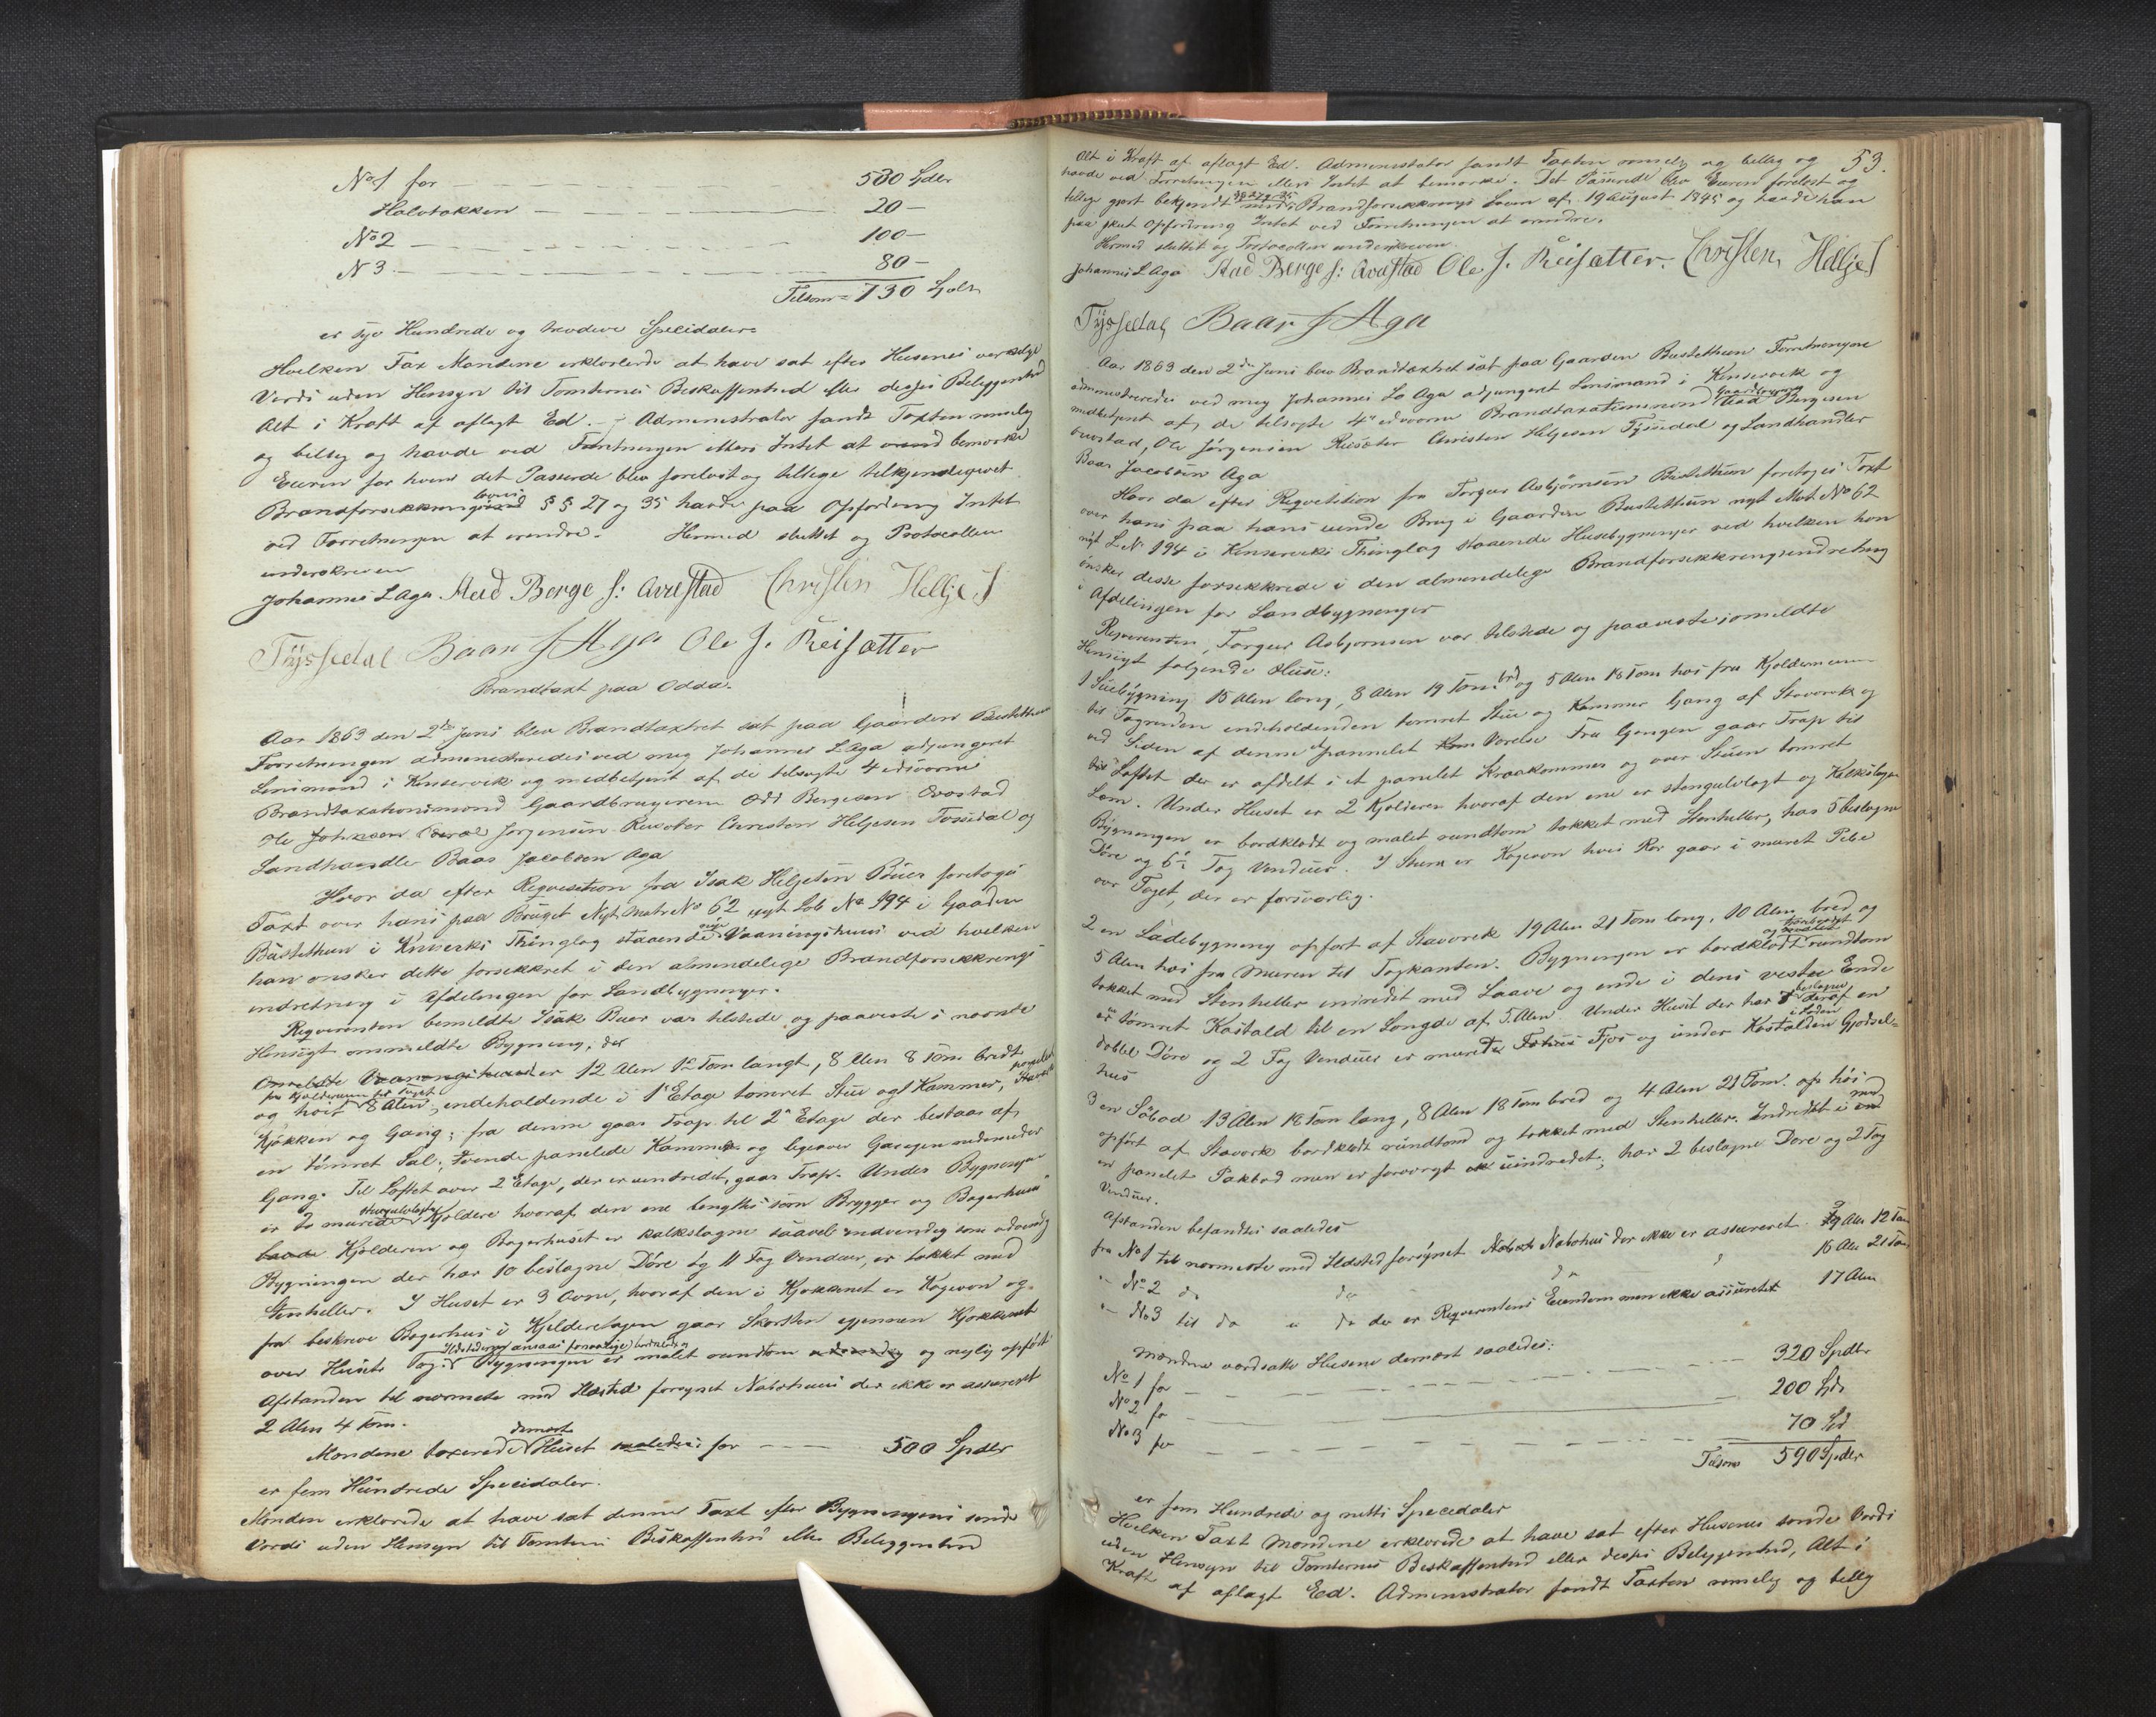 No 1 for 530 Spdlr
Halvtækken 20 —
No 2 100 —
N 3. 80 —
Tilsom = 730 Spdlr
er syv Hundrede og tredeve Specidaler
Hvelken Tax Mændene erklærede at have sat efter Husenes verkelige
Værdi uden Hensyn til Tomternes Beskaffenhed eller desses Beleggenhed
Alt i Kraft af aflagt Ed. Administrator fandt Taxten remelig
og belleg og havde ved Forretningen ellers Intet at bemærke
Eieren for hvem det Passerede blev forelæst og tillige tilkjendegivet
Brandforsekkrings lovens §§ 27 og 35 havde paa Opfordring Intet
ved Forretningen at erendre. Hermed sluttet og Protocollen
underskreven
Johannes L Aga Aad Berge s: Avastad Christen Hellje S
Tyssedal Baar J Aga Ole J. Reisætter
Brandtaxt paa Odda.
Aar 1863 den 2den Juni blev Brandtaxtret sat paa Gaarden Bustethun
Forretningen administreredes ved mig Johannes L Aga adjungeret
Lensmand i Kinservik og medbetjent af de tilsagte 4 edsvorne
Brandtaxationsmænd Gaardbrugerene Odd Bergesen Ovastad
Ole Jørgensen Reisæter Christen Helgesen Tyssedal og
Landhandler Baar Jacobsen Aga
Hvor da efter Reqvisition fra Isak Helgesen Buer foretoges
Taxt over hans paa Bruget Nyt Matr No 62 nyt Løb No 194 i Gaarden
Bustethun i Kinserviks Thinglag staaende Vaaningshuus ved hvelken
han ønsker dette forsekkret i den almendelige Brandforsekkrings
indretning i Afdelingen for Landbygninger.
Reqverenten bemeldte Isak Buer var tilstede og paaveste i nævnte
Hensigt ommeldte Bygning, der
er 12 Alen 12 Tom langt, 8 Alen 8 Tom bredt
og høit fra Kjeldermuren til Taget 8 Alen, endeholdende i 1 Etage tømret Stue og 1 Kammer, panelet
Kjøkken og Gang; fra denne gaar Trap til 2n Etage der bestaar af
en tømret Sal, tvende panelede Kammere og ligeover Gangen nedenunder
Gang. Til Loftet over 2 Etage, der er uendredet, gaar Trap. Under Bygningen
er to murede Kjeldere hvoraf den ene benyttes som Brygger og Bagerhuus
Kjelderen og Bagerhuset er kalkslagne saavel indvendig som udvendig
Bygningen der har 10 beslagne Døre og 11 Fag Vinduer, er tækket med
Stenheller. I Huset er 3 Ovne, hvoraf den i Kjøkkenet er Kogeovn og
fra beskrevne Bagerhus i Kjelderetagen gaar Skorsten igjennem Kjøkkenet
over Husets Tag. Ildstederne ansaaes forsvarlige Bygningen er malet rundtom og nylig opført
Afstanden til nærmeste med Ildsted forsynet Nabohuus der ikke er assureret
2 Alen 4 Tom.
Mændene taxerede dernæst Huset for 500 Spdlr
er fem Hundrede Specidaler.
Mænden erklærede at have sat denne Taxt efter Bygningens sande
Værdi uden Hensyn til Tomtens Beskaffenhed eller Beleggenhed
53.
Alt i Kraft af aflagt Ed. Administrator fandt Taxten remelig og belleg og
havde ved Forretningen ellers Intet at bemærke. Det Passerede blev Eieren forelæst og
tillige gjort bekjendt med §§ 27 og 35 Brandforsekkrings Loven af 19 August 1845 og havde han
paa skeet Opfordring Intet ved Forretningen at erendre.
Hermed sluttet og Protocollen underskreven
Johannes L Aga Aad Berge s: Avastad Ole J. Reisætter. Christen HelljeS
Tyssedal Baar J Aga
Aar 1863 den 2den Juni blev Brandtaxtret sat paa Gaarden Bustethun Forretningen
administreredes ved mig Johannes L Aga adjungeret Lensmand i Kinservik og
medbetjent af de tilsagte 4re edsvorne Brandtaxationsmænd Gaardbrugerne Aad Bergesen
Avastad, Ole Jørgensen Reisæter Christen Helgesen Tyssedal og Landhandler
Baar Jacobsen Aga
Hvor da efter Reqvisition fra Torger Asbjørnsen Bustethun foretoges Taxt
over hans paa hans eiende Brug i Gaarden Bustethun nyt Matr No 62
nyt L. N. 194 i Kinserviks Thinglag staaende Husebygninger ved hvelken han
ønsker desse forsekkrede i den almendelige Brandforsekkringsindretning
i Afdelingen for Landbygninger
Reqverenten, Torger Asbjørnsen var tilstede og paaveste i omeldte
Hensigt følgende Huse:
1 Stuebygning 15 Alen lang, 8 Alen 19 Tom bred og 5 Alen 18 Tom høi fra Kjeldermuren
til Tagrenden endeholdenden tømret Stue og Kammer Gang af Stavværk og
ved Seden af denne et pannelet Værelse Fra Gangen gaar Trap til
Loftet der er afdelt i et panelet Kraakammer og over Stuen tømret
Lem. Under Huset er 2 Kjeldere hvoraf den ene er stengulvlagt og Kalkslagen
Bygningen er bordklædt og malet rundtom tækket med Stenheller, har 5 beslagne
Døre og 6 Fag Vinduer. I Stuen er Kogeovn hvis Rør gaar i muret Pibe
over Taget, der er forsvarlig.
2 en Ladebygning opført af Stavværk 19 Alen 21 Tom lang, 10 Alen bred og
5 Alen høi fra Muren til Tagkanten. Bygningen er bordklædt rundtom
tækket med Stenheller inredet med Laave og ende i dens vestre Ende
er tømret Kostald til en Længde af 5 Alen. Under Huset der har beslagne deraf en
dobbel Døre og 2 Fag Vinduer er muret Fjøs og under Kostalden Gjødsel=
hus
3 en Søbod 13 Alen 18 Tom lang, 8 Alen 18 Tom bred og 4 Alen 21 Tom. høi
opført af Stavværk bordklædt rundtom og tækket med Stenheller. Indredet med
en panelet Pakbod men er forøvrigt uindredet, har 2 beslagne Døre og 2 Fag
Vinduer.
Afstanden befandtes saaledes
fra No 1 til nærmeste med Ildsted forsynet Nabohus der ikke er assureret. 9 Alen 12 Tom
" No 2 do do 16 Alen 21 Tom
" No 3 til do do der er Reqverentens Eiendom men ikke assureret 17 Alen
Mændene værdsatte Husene dernæst saaledes:
No 1 for 320 Spdlr
No 2 for 200 Spd
No 3 for 70 Spd
Tilsom 590 Spdlr
er fem Hundrede og netti Specedaler
Hvelken Taxt Mændene erklærede at have sat efter Husenes sande Værdi
uden Hensyn til Tomternes Beskaffenhed eller desses Beleggenhed, Alt i
Kraft af aflagt Eed. Administrator fandt Taxten remelig og belleg